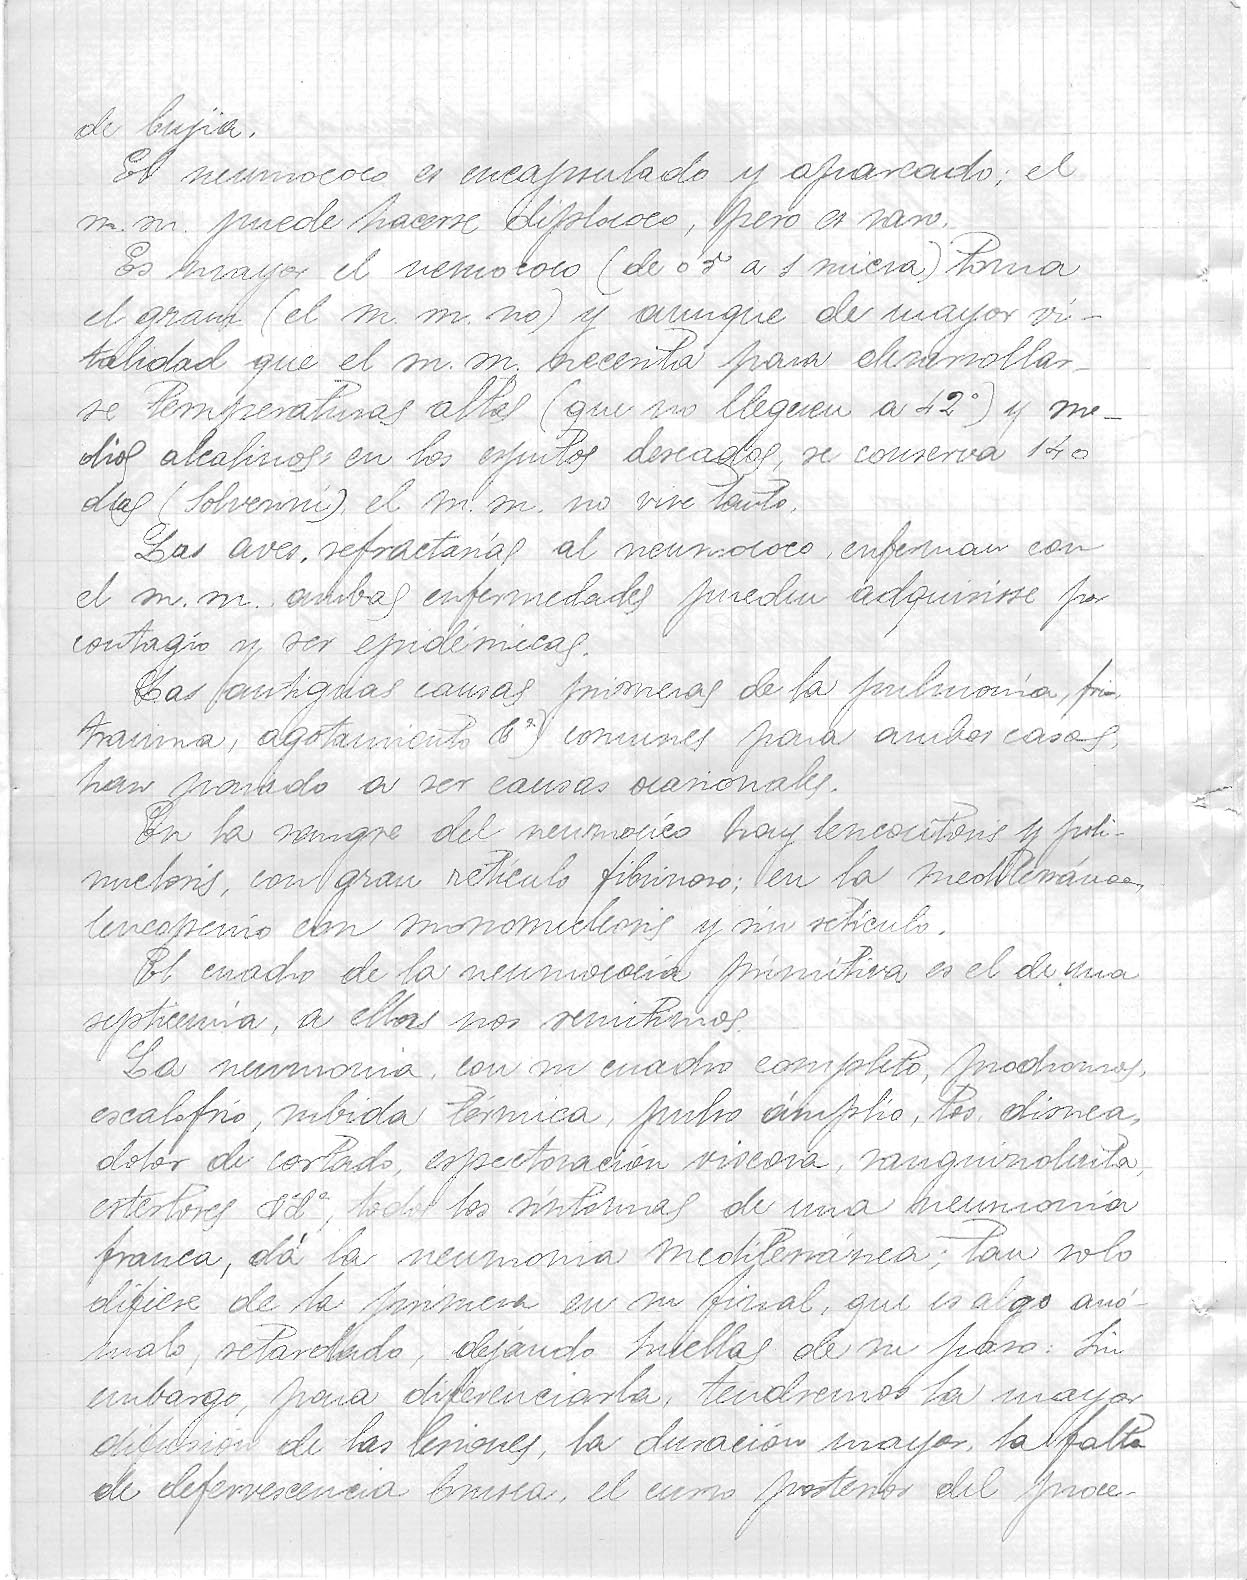 de bujía.
El neumococo es encapsulado y apareado; el
m.m. puede hacerse diplococo, pero es raro.
Es mayor el nemococo (de 0'5 a 1 micra) toma
el gram (el m. m. no) y aunque de mayor vi-
talidad que el m.m. necesita para desarrollar-
se temperaturas altas (que no lleguen a 42°) y me-
dios alcalinos; en los esputos desecados, se conserva 140
días ( ) el m.m. no vive tanto.
Las aves, refractarias al neumococo, enferman con
el m.m. ambas enfermedades pueden adquirirse por
contagio y ser epidémicas.
Las (antiguas causas primeras de la pulmonía,
trauma, agotamiento &ª) comunes para ambos casos,
han pasado a ser causas ocasionales.
En la sangre del neumócico hay leucocitosis y poli-
nucleosis, con gran retículo fibrinoso; en la mediterránea,
leucopenia con mononucleosis y sin retículo.
El cuadro de la neumococia primitiva es el de una
septicemia, a ellas nos remitimos.
La neumonia, con su cuadro completo, prodromos,
escalofrío, subida térmica, pulso ámplio, tos, disnea,
dolor de costado, espectoración viscosa, sanguinolenta,
estertores &ª, todos los síntomas de una neumonía
franca, dá la neumonia mediterránea; tan solo
difiere de la primera en su final, que es algo anó-
malo, retardado, dejando huellas de su paso: Sin
embargo, para diferenciarla, tendremos la mayor
difusión de las lesiones, la duración mayor, la falta
de defervescencia brusca, el curso posterior del proce-